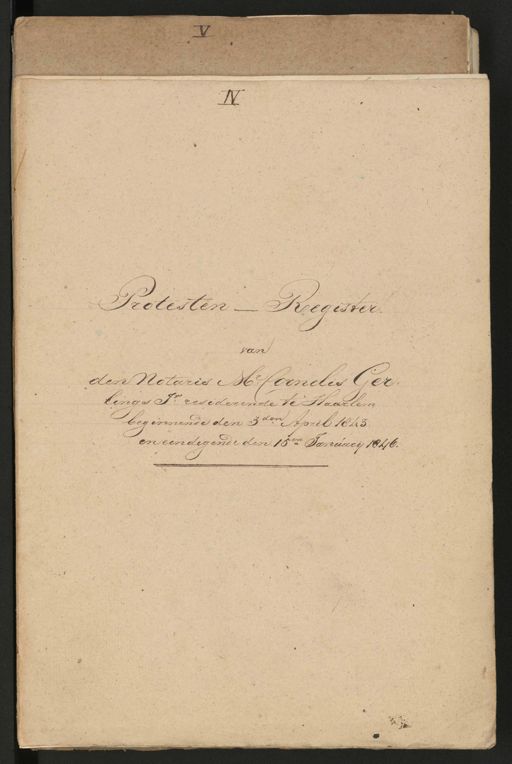 V
IV
Protesten — Register
van
den Notaris Mr Cornelis Ger-
lings Jnr resideerende te Haarlem
beginnende den 3den April 1843
en eindigende den 15den January 1846.